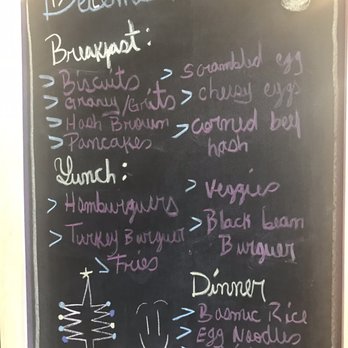 Breakfast:
> Biscuits
> Gravy/Grits
> Hash Brown
> Pancakes
> scrambled egg
> chessy eggs
> corned beef
hash
Lunch:
> Hamburguers
> Turkey Burguer
> Fries
> Veggies
> Black bean
Burguer
Dinner
> Basmic Rice
> EGG Noodles